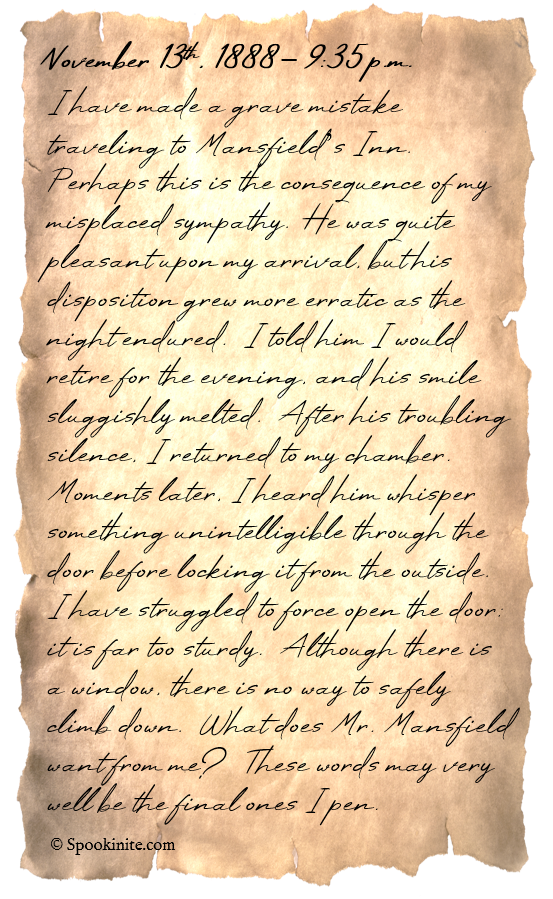 November 13th, 1888 – 9:35 p.m.
I have made a grave mistake
traveling to Mansfield's Inn.
Perhaps this is the consequence of my
misplaced sympathy. He was quite
pleasant upon my arrival, but his
disposition grew more erratic as the
night endured. I told him I would
retire for the evening, and his smile
sluggishly melted. After his troubling
silence, I returned to my chamber.
Moments later, I heard him whisper
something unintelligible through the
door before locking it from the outside.
I have struggled to force open the door;
it is far too sturdy. Although there is
a window, there is no way to safely
climb down. What does Mr. Mansfield
want from me? These words may very
well be the final ones I pen.
© Spookinite.com